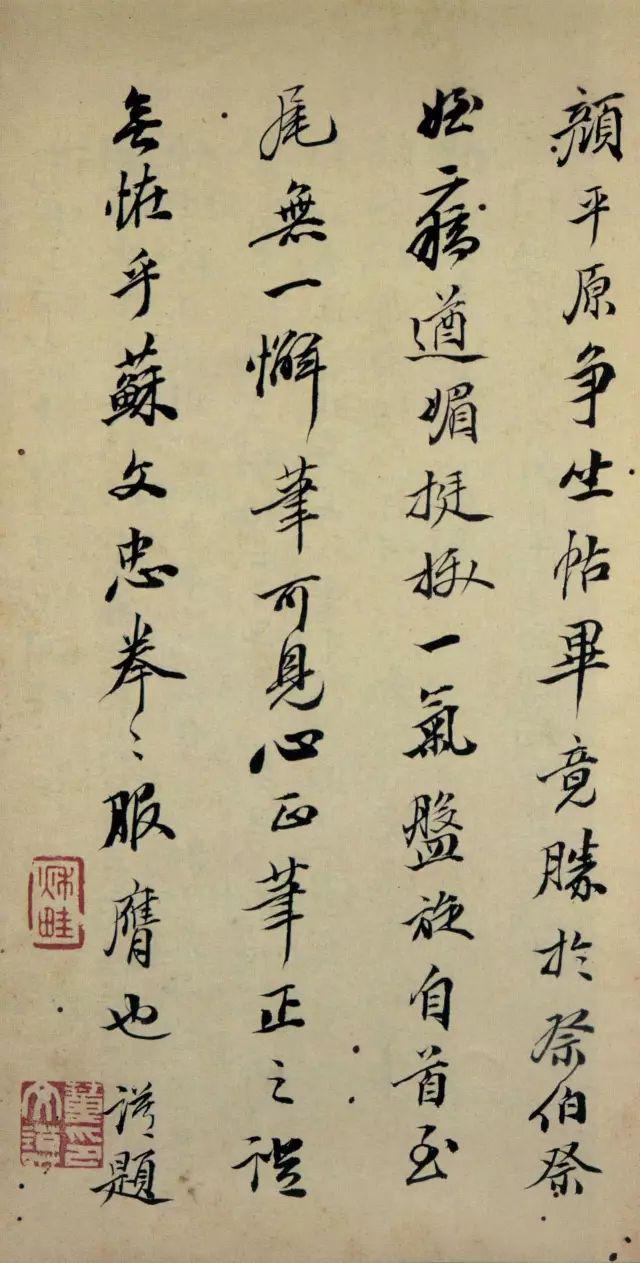 顔平原争坐帖畢竟勝於祭伯祭
姪二藳遒媚挺拔一氣盤旋自首至
尾無一懈筆可見心正筆正之説
無恠乎蘇文忠拳〻服膺也 誥題